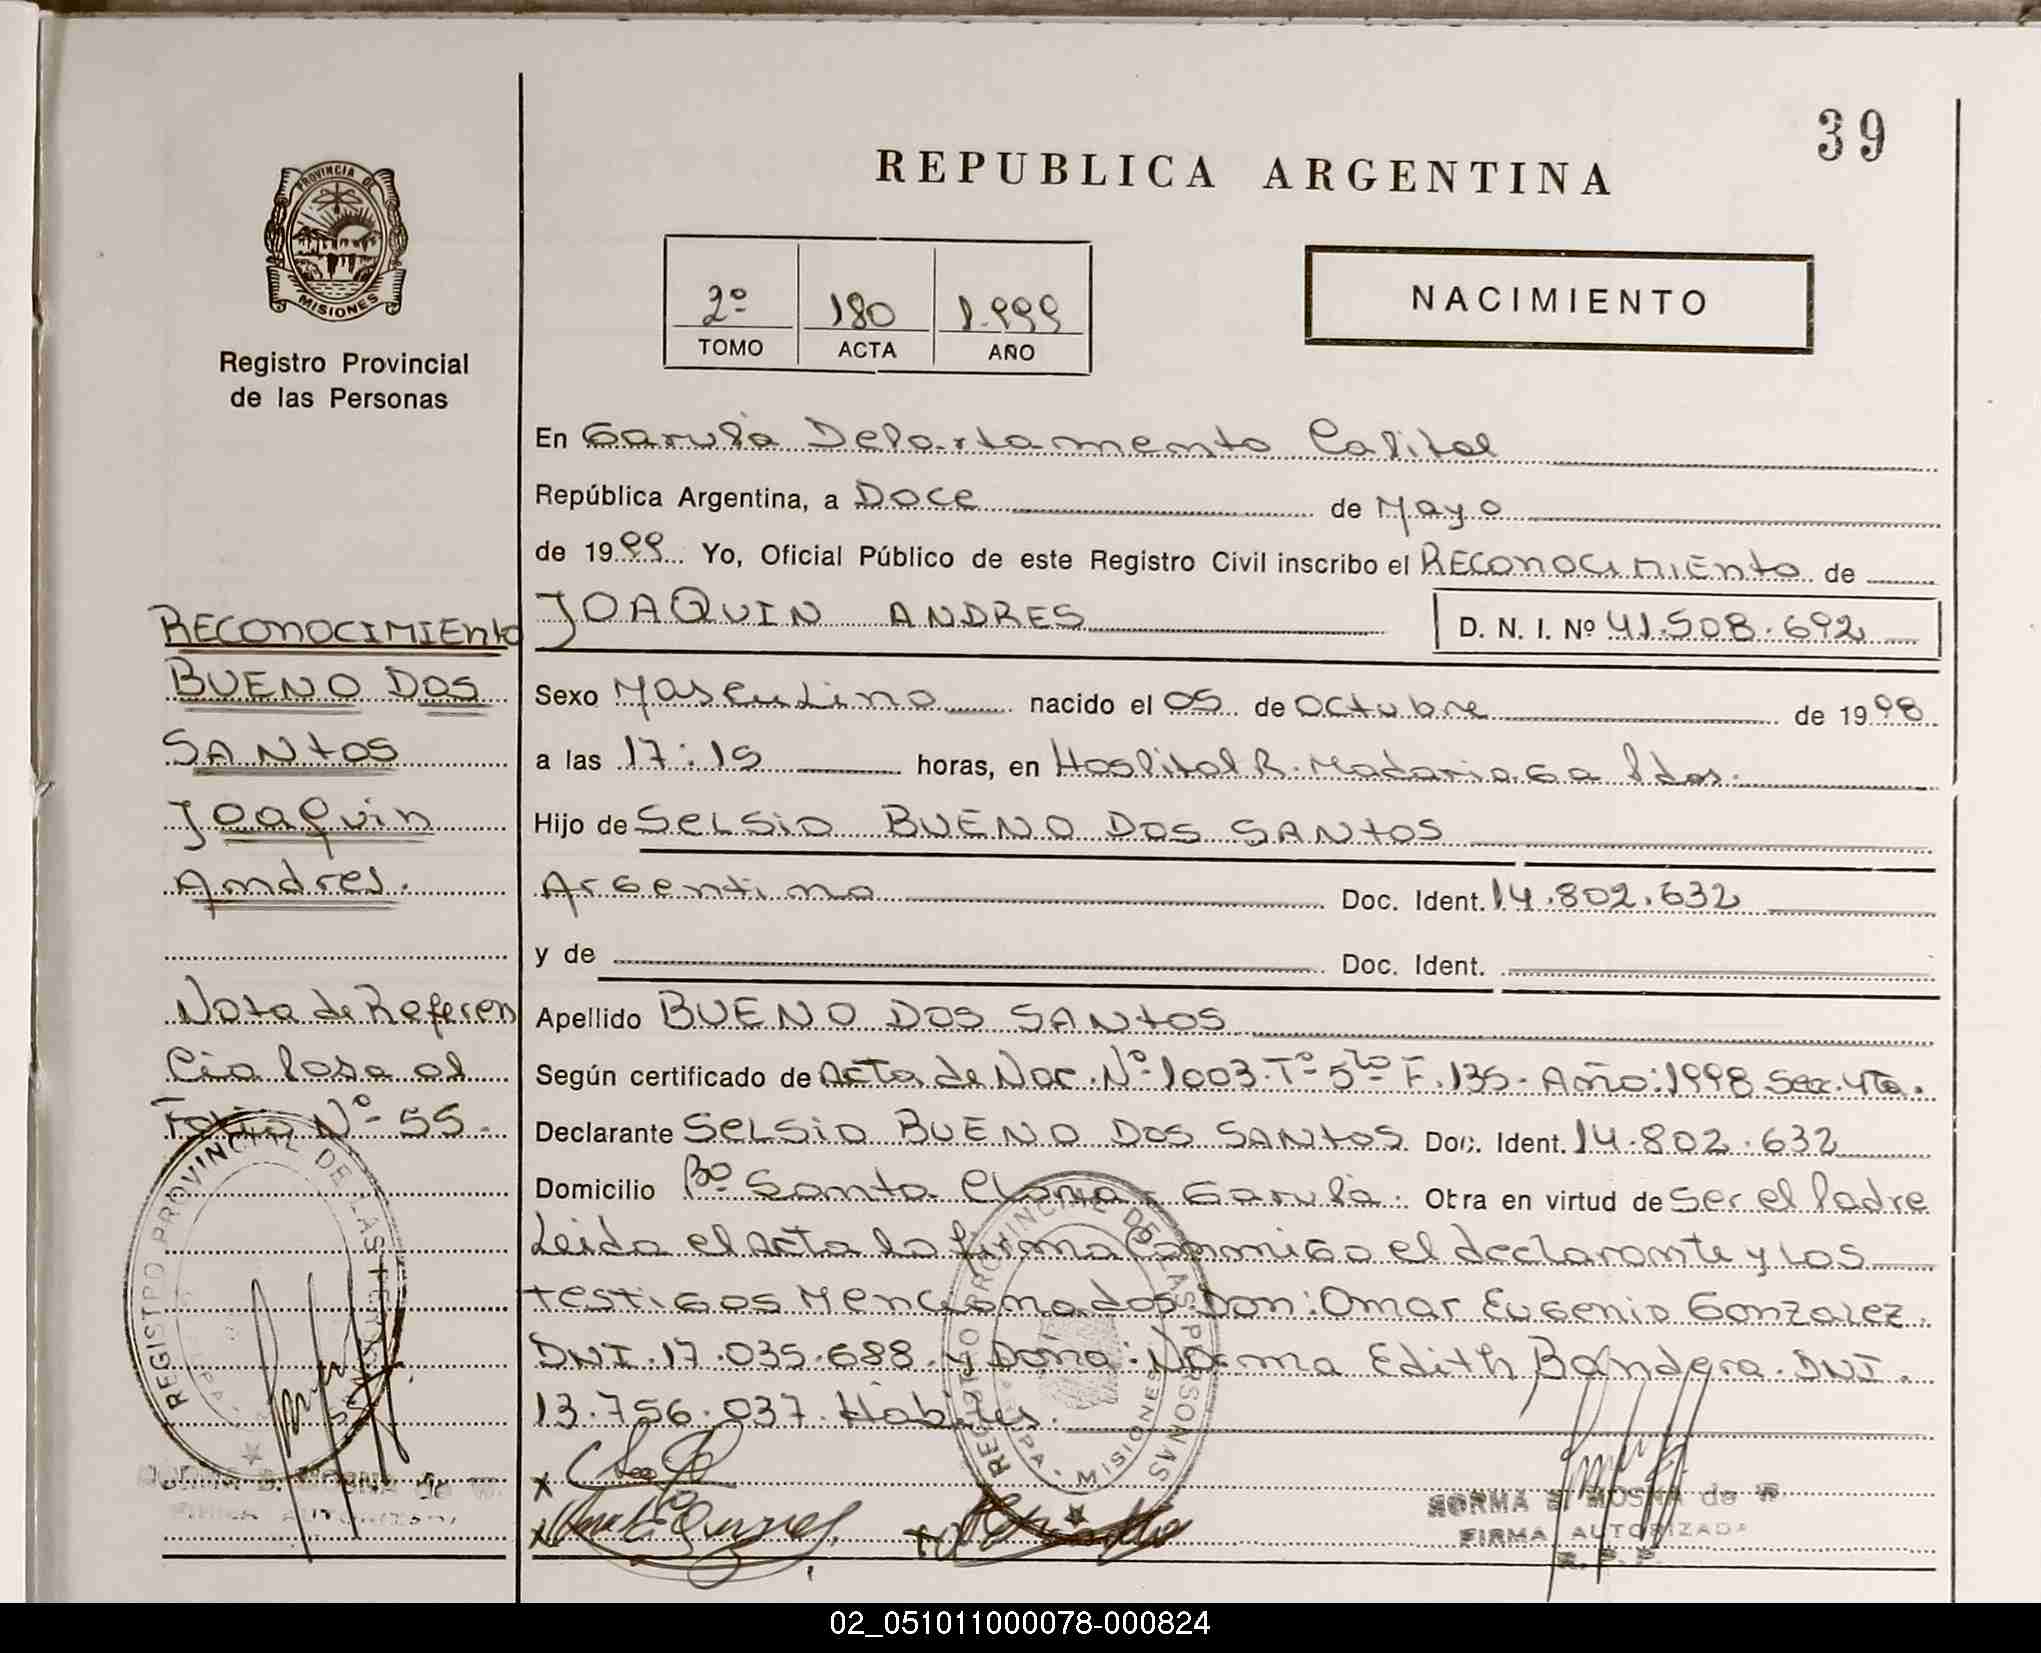 39
REPUBLICA ARGENTINA
PROVINCIA DE
MISIONES
Registro Provincial
de las Personas
2º 180 1.999
TOMO ACTA AÑO
NACIMIENTO
En Garupá Departamento Capital
República Argentina, a Doce de Mayo
de 1999 Yo, Oficial Público de este Registro Civil inscribo el RECONOCIMIENTO de
JOAQUIN ANDRES D. N. I. Nº 41.508.692
Sexo Masculino nacido el 05 de Octubre de 1998
a las 17:15 horas, en Hospital R. Madariaga Pdas.
Hijo de SELSIO BUENO DOS SANTOS
Argentino Doc. Ident. 14.802.632
y de Doc. Ident.
Apellido BUENO DOS SANTOS
Según certificado de Acta de Nac. Nº 1003-Tº 5to F. 135- Año: 1998 Sec. 4ta.
Declarante SELSIO BUENO DOS SANTOS Doc. Ident. 14.802.632
Domicilio Bº Santa Clara - Garupá. Obra en virtud de ser el Padre
Leida el acta la firma conmigo el declarante y los
testigos Mencionados Don: Omar Eugenio Gonzalez.
DNI. 17.035.688 y Doña: Norma Edith Bandera. DNI.
13.756.037. Hábiles.
RECONOCIMIENTO
BUENO DOS
SANTOS
Joaquin
Andres.
Nota de Referen
cia pasa al
Folio Nº 55.
REGISTRO PROVINCIAL DE LAS PERSONAS
REGISTRO PROVINCIAL DE LAS PERSONAS
MISIONES
NORMA B. MOSNA de W.
FIRMA AUTORIZADA
R. P. P.
NORMA B. MOSNA de W.
FIRMA AUTORIZADA
02_051011000078-000824